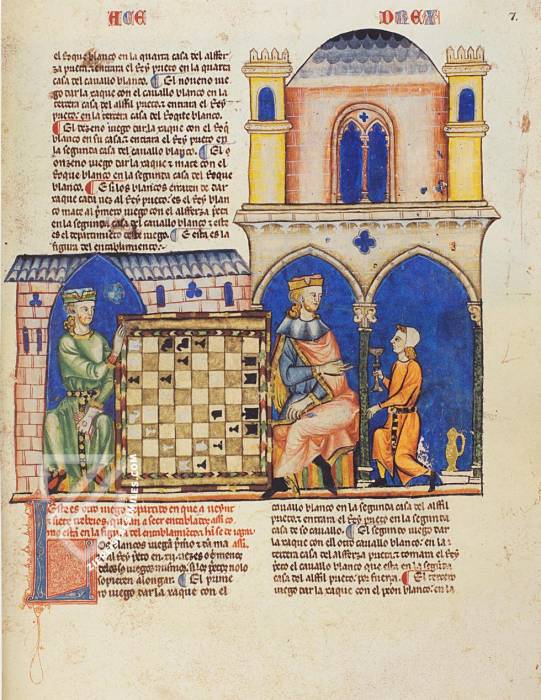 ACE DREX
7.
el Roque blanco en la quarta casa del alfferza prieta: entrara el Rey prieto en la quarta
casa del cauallo blanco. El noueno iuego
dar la xaque con el cauallo blanco en la
tercera casa del alffil prieto: entrara el Rey
prieto en la tercera casa del Roque blanco.
El dezeno iuego dar la xaque con el Roq
blanco en su casa: entrara el Rey prieto en
la segunda casa del cauallo blanco. El onzeno iuego dar la xaque
blanco en la segunda casa del Roque
blanco. E si los blancos erraren de dar
xaque cada uez al Rey prieto: es el Rey blanco
mato al primero iuego con el alfferza prieta
en la segunda casa del cauallo blanco: este
es el departimiento deste iuego. E esta es la
figura del entablamiento.
Este es otro iuego departido en que a ueynt
siete trebeios que an a seer entablados assi co
mo esta en la figura del entablamiento
Los blancos iuegan primero
al Rey prieto en
delos sos iuegos mismos. si los prietos nolo
sopieren alongar. El primero
iuego dar la xaque con el
cauallo blanco en la segunda casa del alffil
prieto: entrara el Rey prieto en la segunda
casa de so cauallo. El segundo iuego dar
la xaque con el otro cauallo blanco: en la
tercera casa dell alfferza prieta: tomara el Rey
prieto el cauallo blanco que esta en la segunda
casa del alffil prieto: por fuerça. El tercero
iuego dar la xaque con el peon blanco: en la